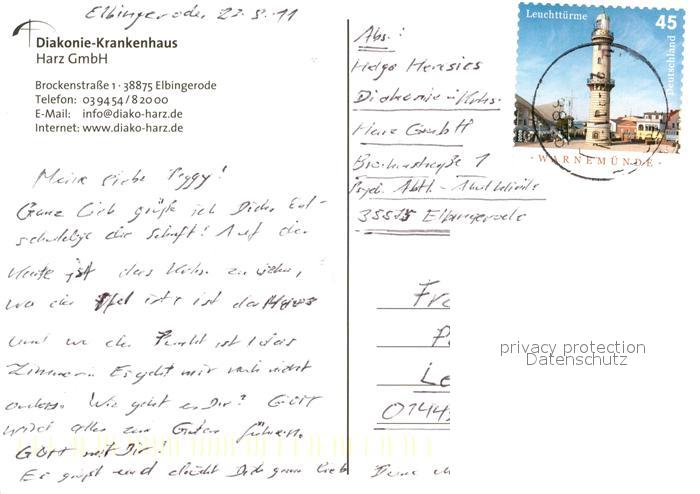 Elbingerode, 22.8.11
Diakonie-Krankenhaus
Harz GmbH
Brockenstraße 1 · 38875 Elbingerode
Telefon: 03 94 54 / 8 20 00
E-Mail: info@diako-harz.de
Internet: www.diako-harz.de
Meine liebe Peggy!
Ganz lieb grüße ich Dich. Ent-
schuldige die Schrift! Auf der
Karte ist das Krhs. zu sehen,
wo der Pfeil ist ist das Haus
und wo der Punkt ist ist das
Zimmer. Es geht mir noch nicht
anders. Wie geht es Dir? GOTT
wird alles zum Guten führen.
GOTT mit Dir!
Es grüßt und drückt Dich ganz lieb
Abs.:
Diakonie-Krhs.
Harz GmbH
Brockenstraße 1
Psych. Abth.
Elbingerode
Leuchttürme
45
Deutschland
WARNEMÜNDE
privacy protection
Datenschutz